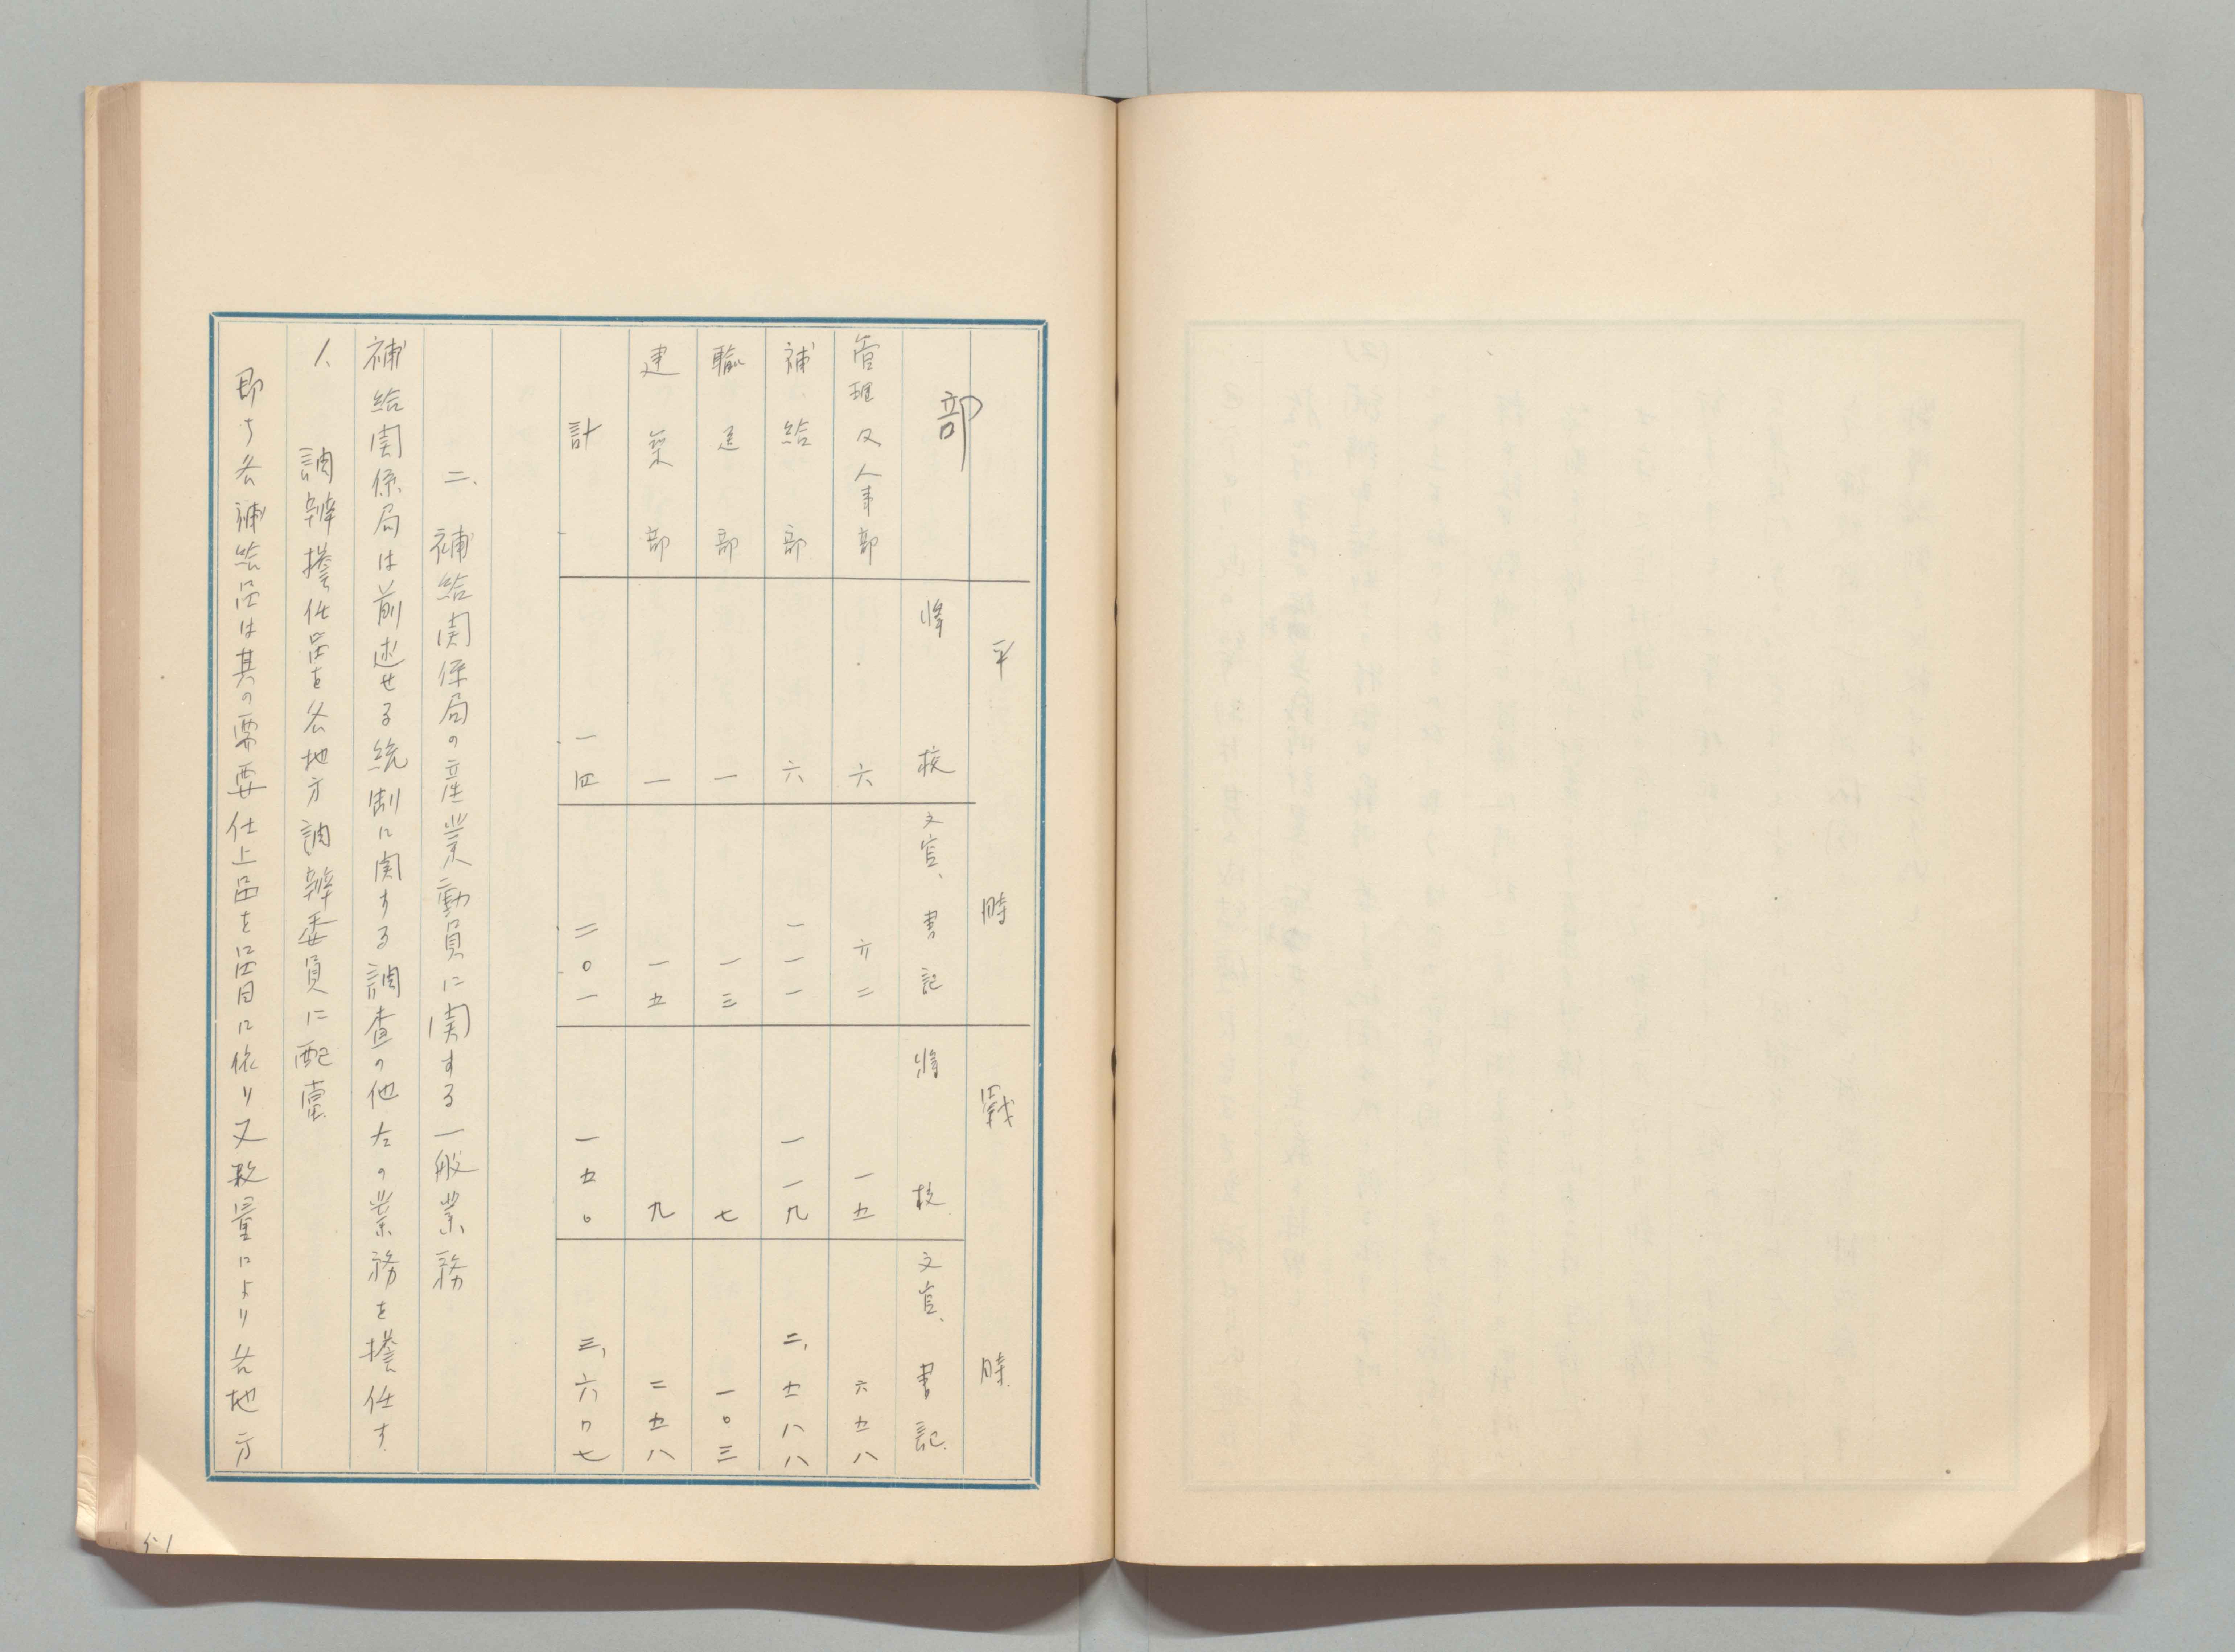 平時 戰時
部 將校 文官、書記 將校 文官、書記
管理及人事部 六 六二 一五 六五八
補給部 六 一一一 一一九 二、五八八
輸送部 一 一三 七 一〇三
建築部 一 一五 九 二五八
計 一四 二〇一 一五〇 三、六〇七
二、補給関係局の産業動員に関する一般業務
補給関係局は前述せる統制に関する調査の他左の業務を擔任す
1、調辨擔任品を各地方調辨委員に配當
即ち各補給品は其の需要仕上品を品目に依り又数量により各地方
51